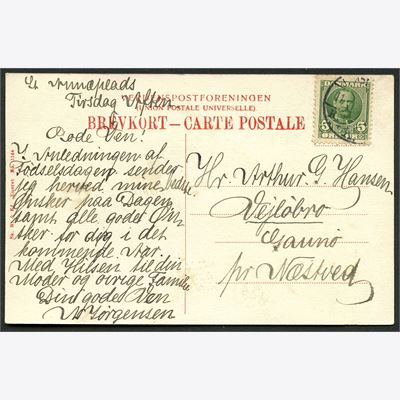 Tirsdag Aften.
VERDENSPOSTFORENINGEN
(UNION POSTALE UNIVERSELLE)
BREVKORT — CARTE POSTALE
DANMARK
5 5
Gode Ven!
I Anledningen af
Fødselsdagen sender
jeg herved mine bedste
Ønsker paa Dagen
samt alle gode Øn-
sker for dig i det
kommende Aar.
Med Hilsen til din
Moder og øvrige Familie
Din gode Ven
Jørgensen
Hr. Arthur G. Hansen
Vejlöbro
Gaunö
pr Næstved